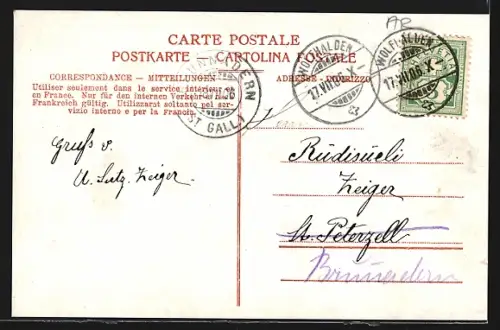 AR
CARTE POSTALE
POSTKARTE – CARTOLINA POSTALE
CORRESPONDANCE – MITTEILUNGEN
ADRESSE – INDIRIZZO
Utiliser seulement dans le service interieur et
en France. Nur für den internen Verkehr und
Frankreich gültig. Utilizzarsi soltanto pel ser-
vizio interno e per la Francia.
WOLFHALDEN
17.VII.06.X-
WOLFHALDEN
17.VII.06.X-
BRUNNADERN
(ST GALL)
Gruss v.
Zeiger.
Rüdisüeli
Zeiger
St. Peterzell
Brunnadern